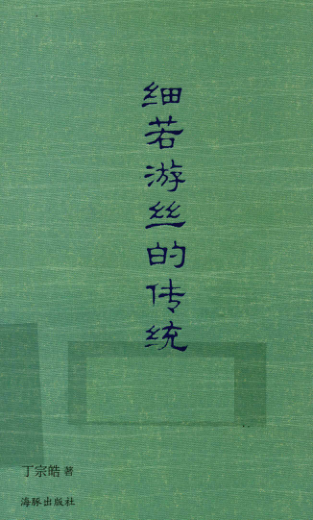 细若游丝的传统
丁宗皓 著
海豚出版社